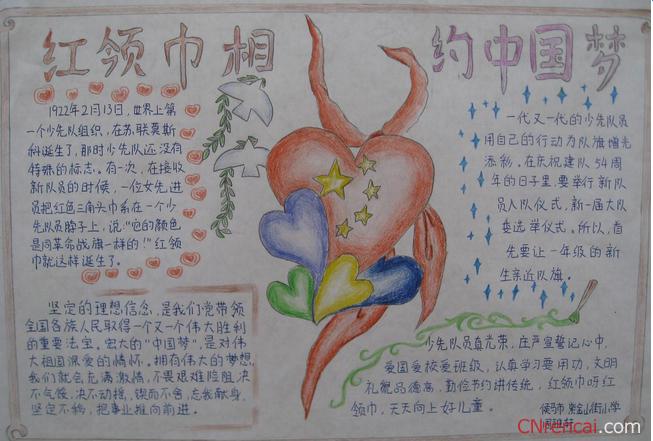 红领巾相约中国梦
1922年2月13日,世界上第
一个少先队组织,在苏联莫斯
科诞生了,那时少先队还没有
特殊的标志。有一次,在接收
新队员的时候,一位女先进
员把红色三角头巾系在一个少
先队员脖子上,说:"它的颜色
是同革命战旗一样的!"红领
巾就这样诞生了。
一代又一代的少先队员
用自己的行动为队旗增光
添彩,在庆祝建队54周
年的日子里,要举行新队
员入队仪式,新一届大队
委选举仪式。所以,首
先要让一年级的新
生亲近队旗。
坚定的理想信念,是我们党带领
全国各族人民取得一个又一个伟大胜利
的重要法宝。宏大的"中国梦",是对伟
大祖国深爱的情怀。拥有伟大的梦想,
我们就会充满激情,不畏艰难险阻,决
不气馁,决不动摇,锲而不舍,忘我献身,
坚定不移,把事业推向前进。
少先队员真光荣,庄严宣誓记心中,
爱国爱校爱班级,认真学习要用功,文明
礼貌品德高,勤俭节约讲传统,红领巾呀红
领巾,天天向上好儿童。
侯马市紫金山街小学
CNrencai.com